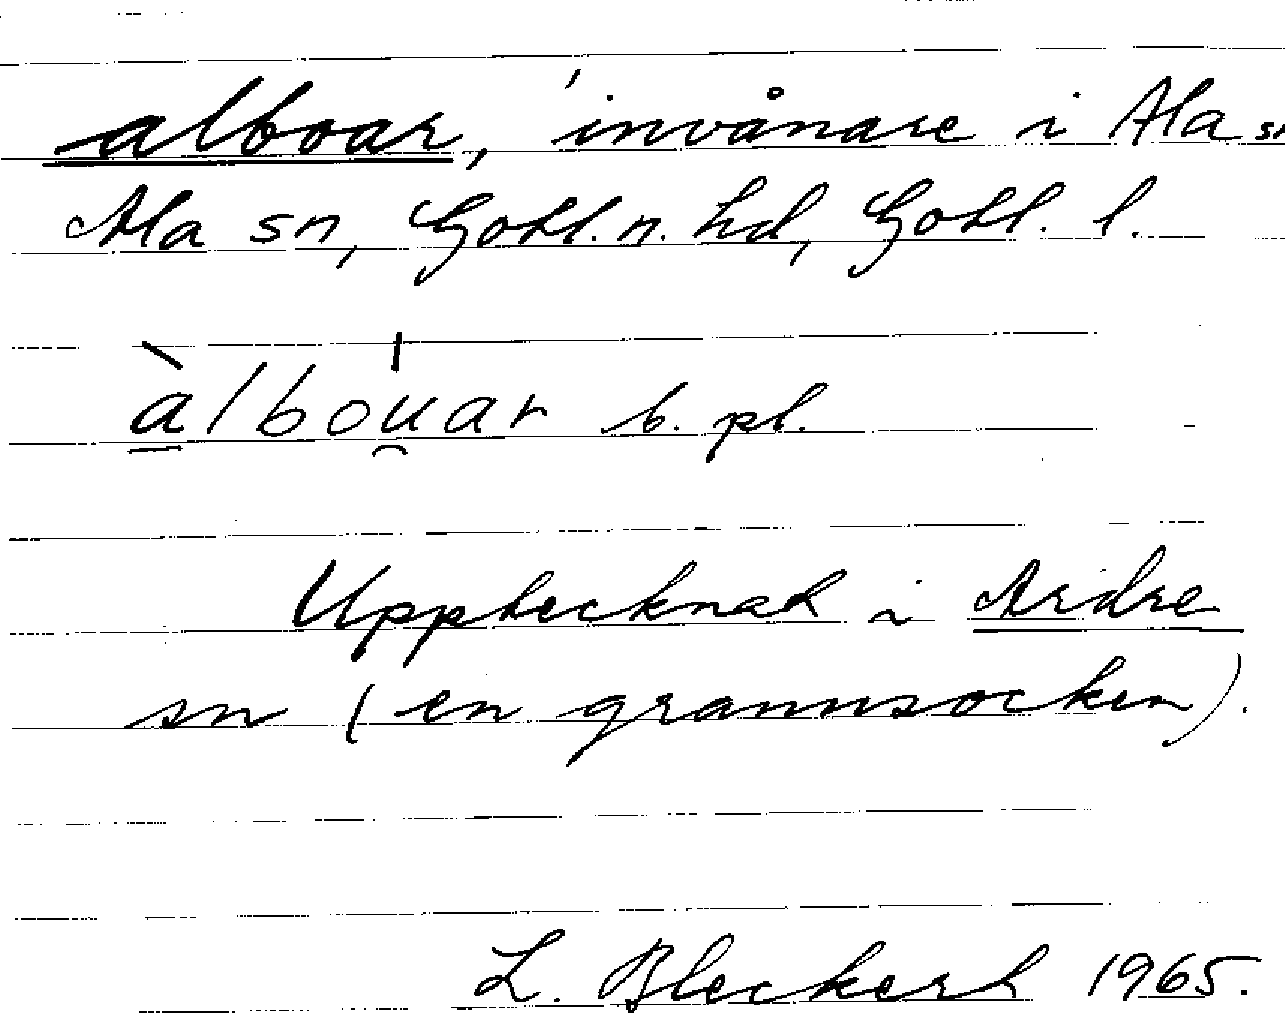 alboar, 'invånare i Ala sn
Ala sn, Gotl. n. hd, Gotl. l.
àlbou̯ar b. pl.
Upptecknat i Ardre
sn (en grannsocken).
L. Bleckert 1965.